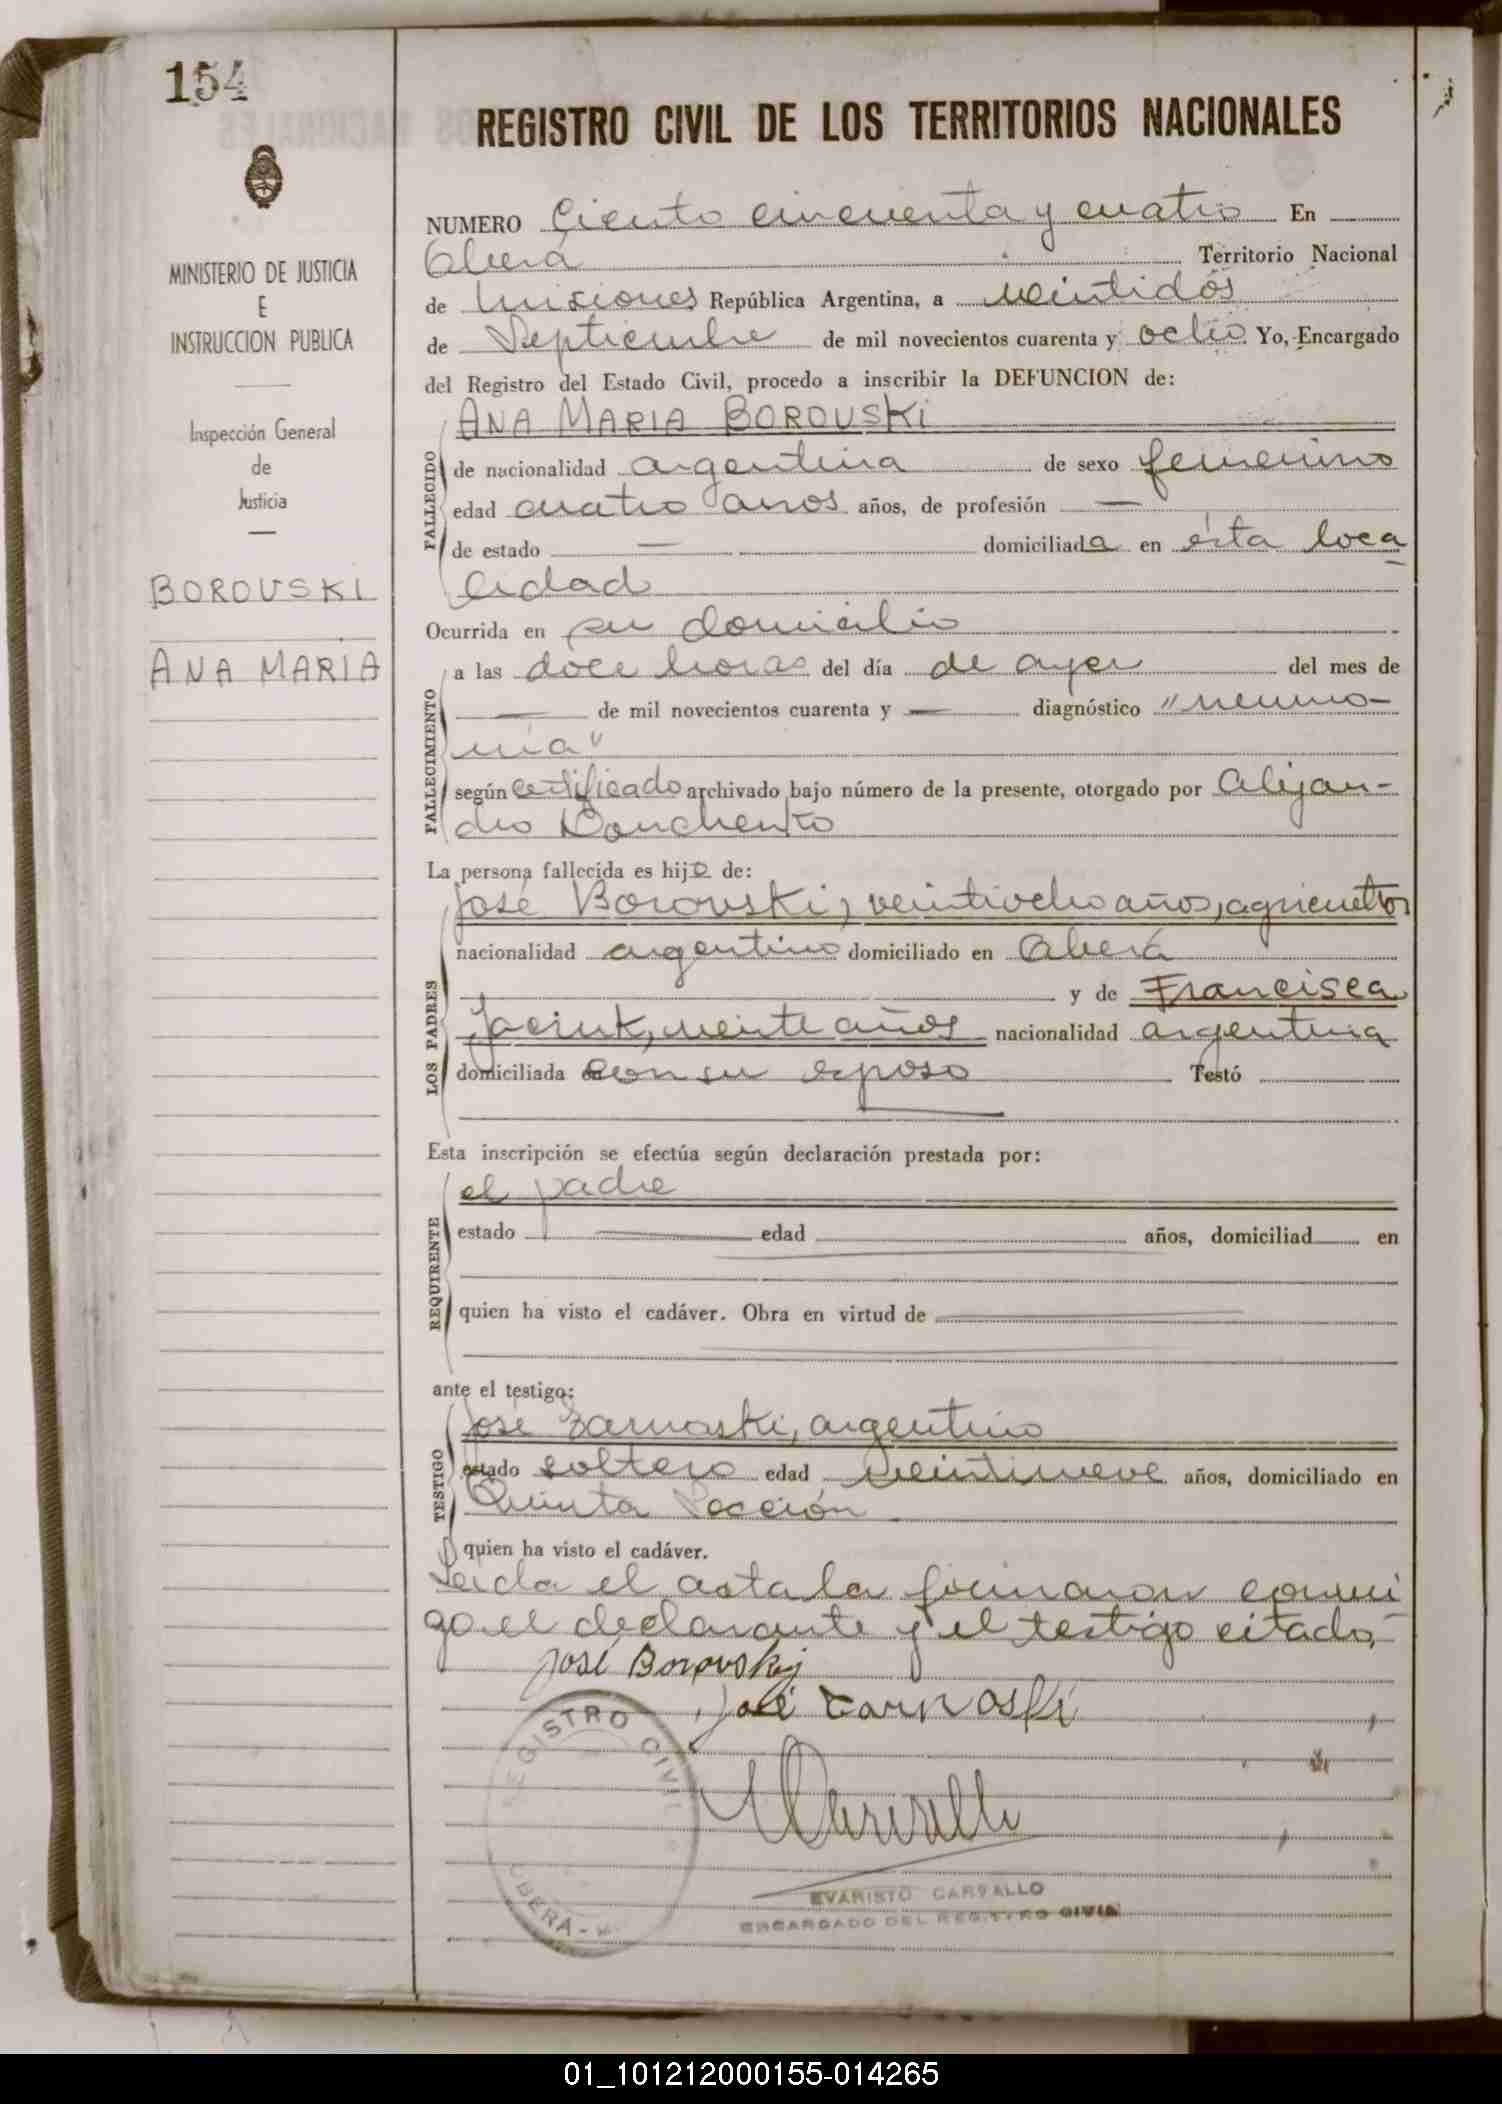 154
REGISTRO CIVIL DE LOS TERRITORIOS NACIONALES
MINISTERIO DE JUSTICIA
E
INSTRUCCION PUBLICA
Inspección General
de
Justicia
BOROVSKI
ANA MARIA
NUMERO Ciento cincuenta y cuatro En
Oberá Territorio Nacional
de Misiones República Argentina, a veintidós
de Septiembre de mil novecientos cuarenta y ocho Yo, Encargado
del Registro del Estado Civil, procedo a inscribir la DEFUNCION de:
ANA MARIA BOROVSKI
FALLECIDO
de nacionalidad argentina de sexo femenino
edad cuatro años años, de profesión —
de estado — domiciliada en ésta loca
lidad
Ocurrida en su domicilio
FALLECIMIENTO
a las doce horas del día de ayer del mes de
— de mil novecientos cuarenta y — diagnóstico "neumo-
nía"
según certificado archivado bajo número de la presente, otorgado por Alejan-
dro
La persona fallecida es hija de:
LOS PADRES
José Borovski, veintiocho años, agricultor
nacionalidad argentino domiciliado en Oberá
y de Francisca
veinte años nacionalidad argentina
domiciliada con su esposo Testó
Esta inscripción se efectúa según declaración prestada por:
REQUIRENTE
el padre
estado — edad años, domiciliad en
quien ha visto el cadáver. Obra en virtud de
ante el testigo:
TESTIGO
José Zarnoski, argentino
estado soltero edad veintinueve años, domiciliado en
Quinta Sección
quien ha visto el cadáver.
Leida el acta la firmaron conmi
go el declarante y el testigo citado,
José Borovski
José Zarnoski
REGISTRO CIVIL
OBERÁ -
EVARISTO CARVALLO
ENCARGADO DEL REGISTRO CIVIL
01_101212000155-014265